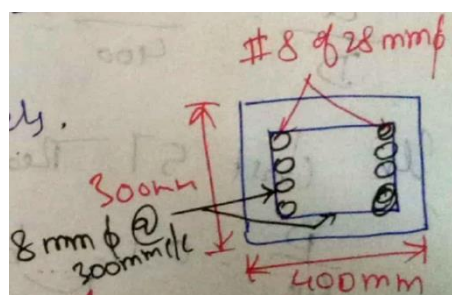 # 8 of 28 mmϕ
ly.
300mm
8 mm ϕ @
300mm c/c
400mm